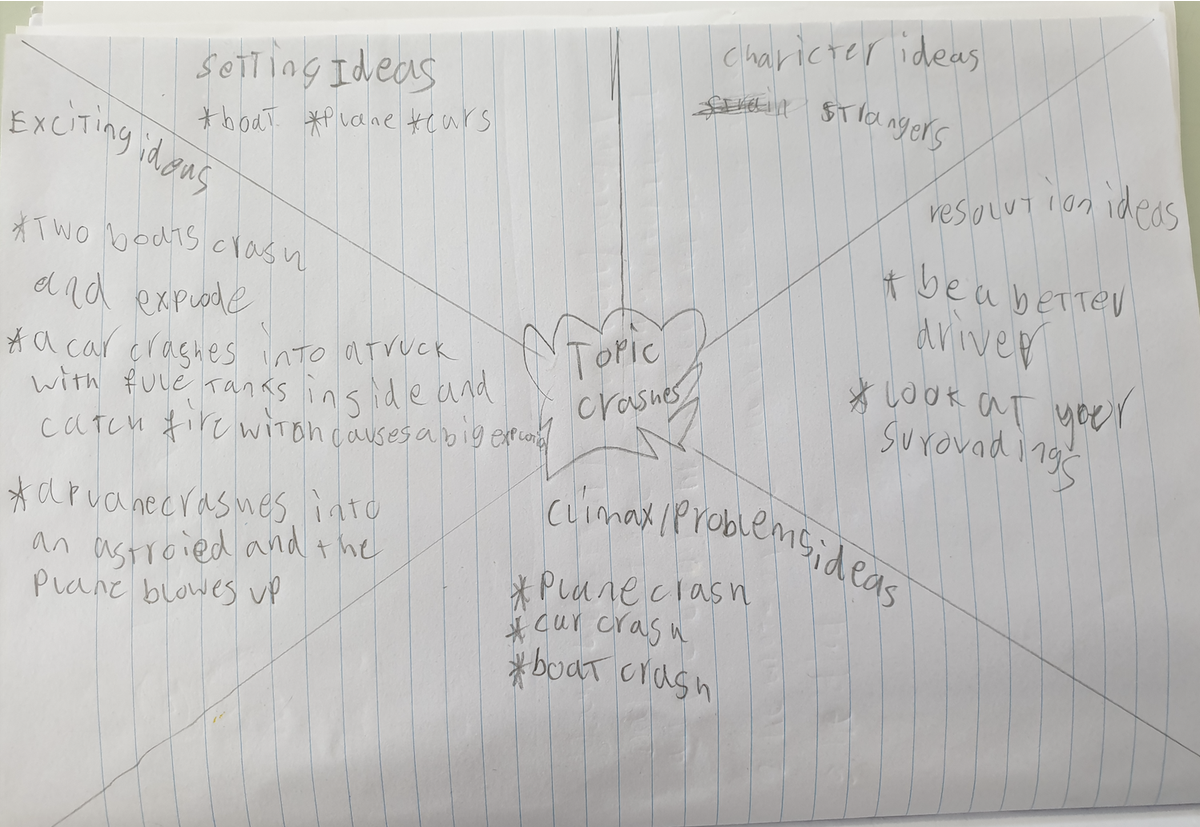 Setting Ideas
*boat *plane *cars
charicter ideas
strangers
Exciting ideas
*Two boats crash
and explode
*a car crashes into a truck
with fule tanks inside and
catch fire witch causes a big
*a plane crashes into
an astroied and the
plane blowes up
Topic
crashes
resolution ideas
*be a better
driver
*look at your
surowdings
climax/problems ideas
*plane crash
*car crash
*boat crash